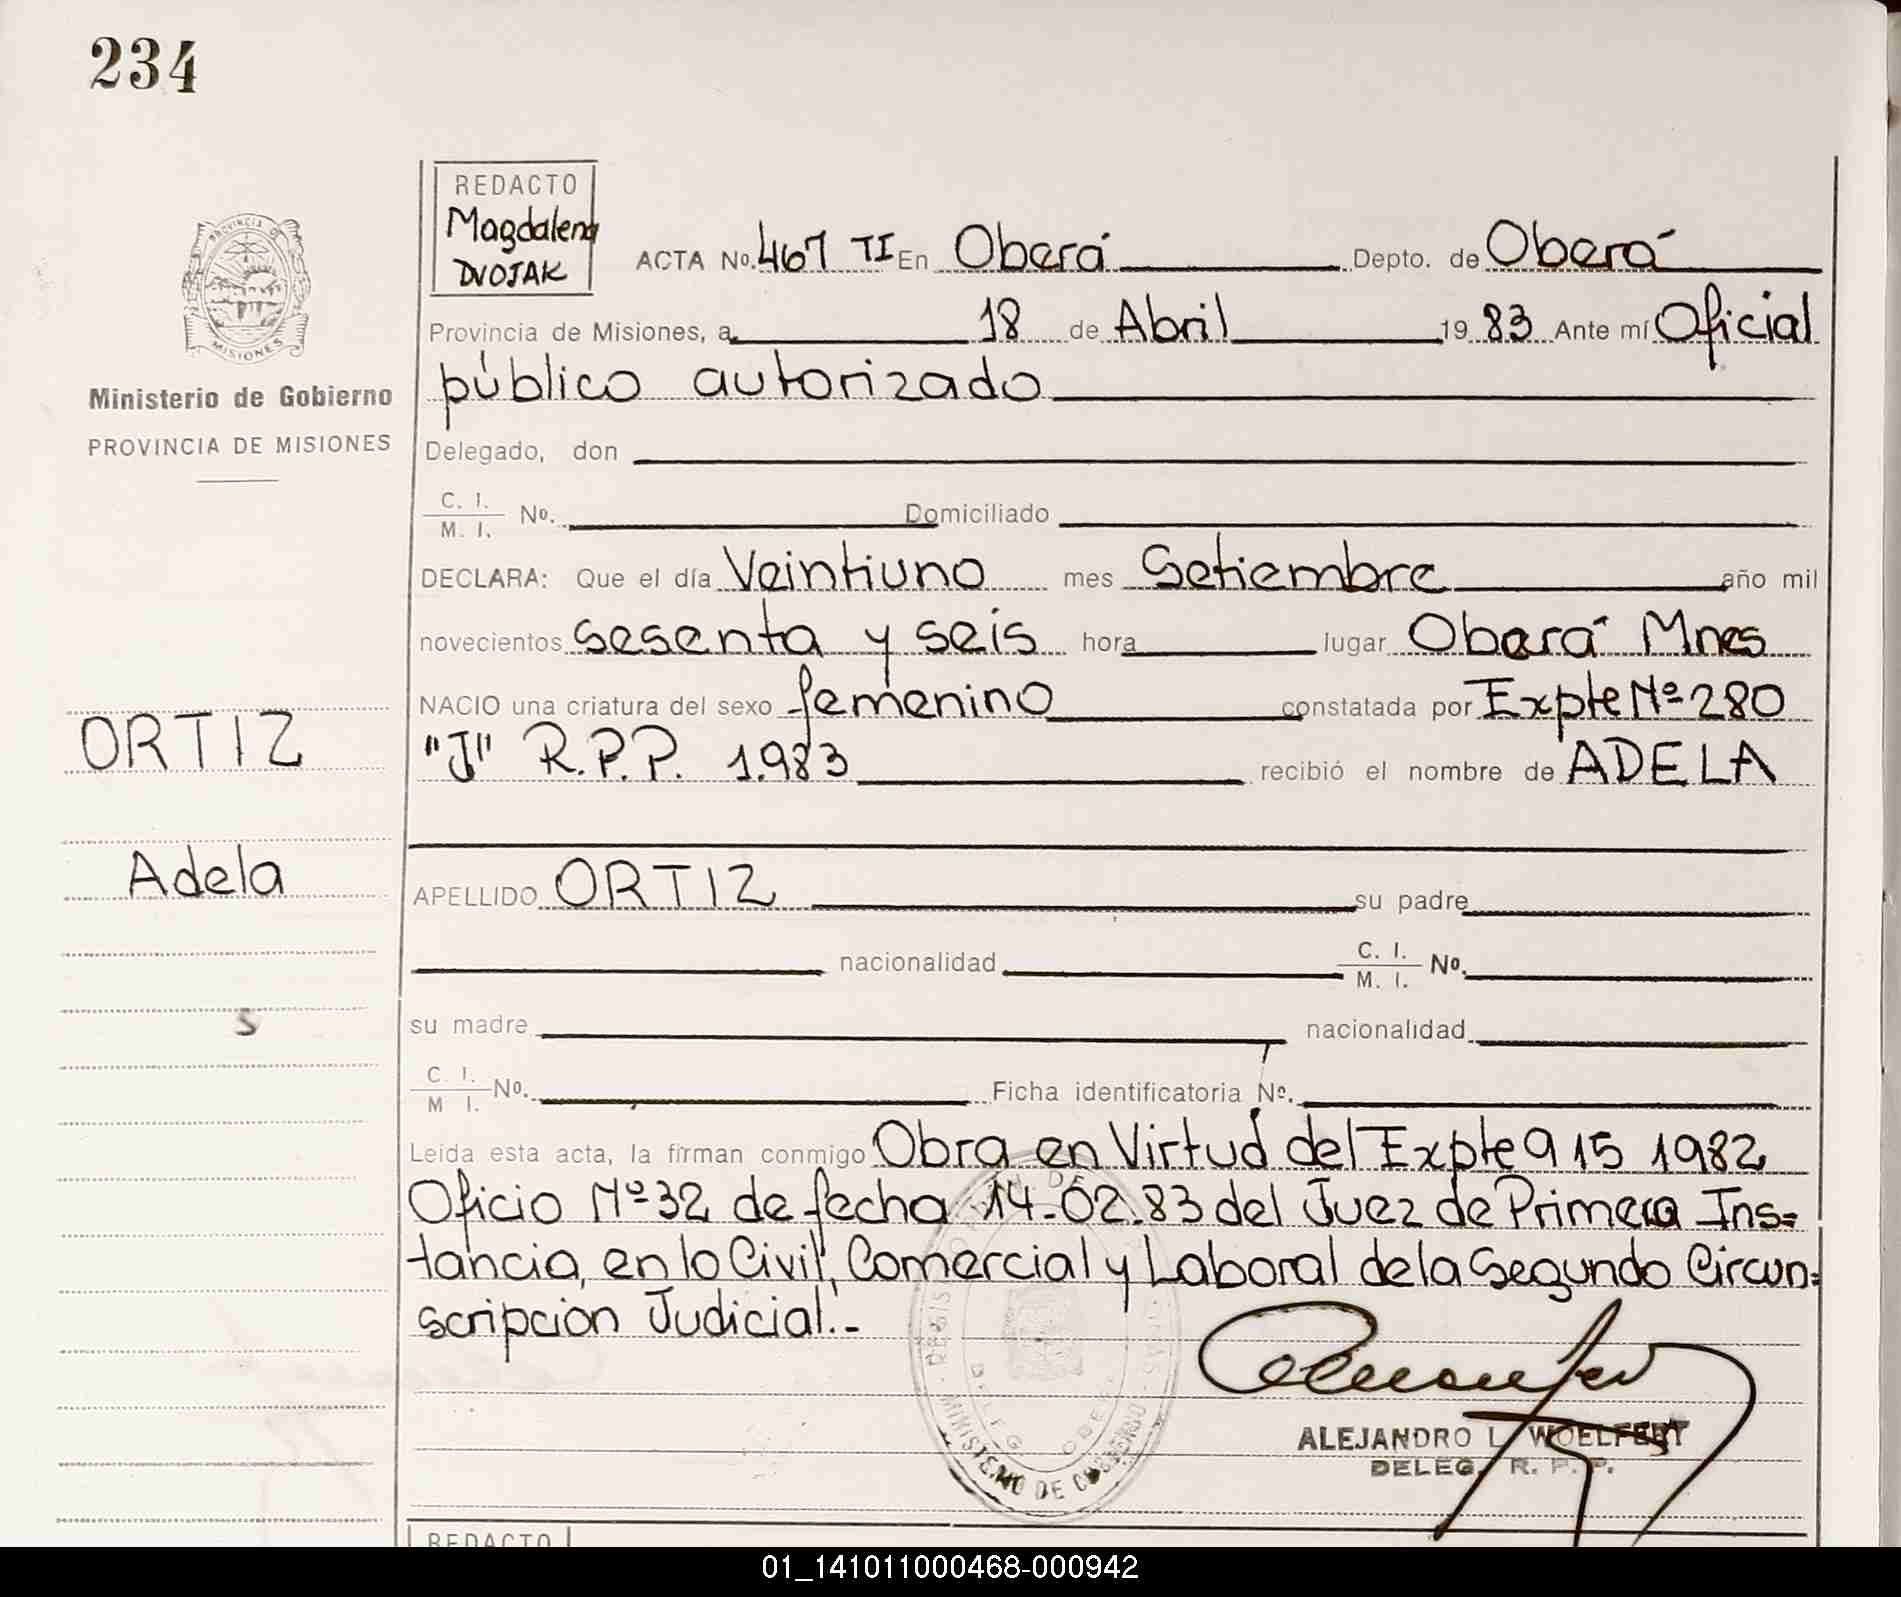 234
REDACTO
Magdalena
DVOJAK
PROVINCIA DE
MISIONES
Ministerio de Gobierno
PROVINCIA DE MISIONES
ACTA No. 467 TI En Oberá Depto. de Oberá
Provincia de Misiones, a 18 de Abril 19 83 Ante mí Oficial
público autorizado
Delegado, don
C. I.
M. I. No. Domiciliado
DECLARA: Que el día Veintiuno mes Setiembre año mil
novecientos sesenta y seis hora lugar Oberá Mnes
NACIO una criatura del sexo femenino constatada por Expte Nº 280
"J" R.P.P. 1.983 recibió el nombre de ADELA
ORTIZ
Adela
APELLIDO ORTIZ su padre
nacionalidad C. I.
M. I. No.
s
su madre nacionalidad
C. I.
M I. No. Ficha identificatoria Nº.
Leída esta acta, la firman conmigo Obra en Virtud del Expte 915 1982
Oficio Nº 32 de fecha 14-02.83 del Juez de Primera Ins=
tancia, en lo Civil, Comercial y Laboral de la Segundo Circun=
scripción Judicial.-
MINISTERIO DE GOBIERNO
DELEG. OBERA
ALEJANDRO L. WOELFERT
DELEG. R. P. P.
REDACTO
01_141011000468-000942